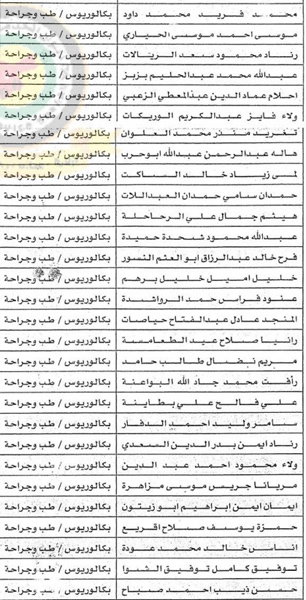 محمد فريد محمد داود بكالوريوس / طب وجراحة
موسى احمد موسى الحياري بكالوريوس / طب وجراحة
رناد محمود سعد الريالات بكالوريوس / طب وجراحة
عبدالله محمد عبدالحليم بزبز بكالوريوس / طب وجراحة
احلام عماد الدين عبدالمعطي الزعبي بكالوريوس / طب وجراحة
ولاء فايز عبدالكريم الوريكات بكالوريوس / طب وجراحة
تغريد منذر محمد العلوان بكالوريوس / طب وجراحة
هاله عبدالرحمن عبدالله ابوحرب بكالوريوس / طب وجراحة
لمى زياد خالد الساكت بكالوريوس / طب وجراحة
حمدان سامي حمدان العبداللات بكالوريوس / طب وجراحة
هيثم جمال علي الرحاحلة بكالوريوس / طب وجراحة
عبدالله محمود شحدة حميدة بكالوريوس / طب وجراحة
فرح خالد عبدالرزاق ابو العثم النسور بكالوريوس / طب وجراحة
خليل اميل خليل برهم بكالوريوس / طب وجراحة
عنود فراس حمد الرواشدة بكالوريوس / طب وجراحة
المنجد عادل عبدالفتاح حياصات بكالوريوس / طب وجراحة
رانيا صلاح عيد الطعامسة بكالوريوس / طب وجراحة
مريم نضال طالب حامد بكالوريوس / طب وجراحة
رأفت محمد جاد الله البواعنة بكالوريوس / طب وجراحة
علي فالح علي بطاينة بكالوريوس / طب وجراحة
سامر وليد احمد الدفار بكالوريوس / طب وجراحة
رناد ايمن بدر الدين السعدي بكالوريوس / طب وجراحة
ولاء محمود احمد عبد الدين بكالوريوس / طب وجراحة
ماريانا جريس موسى مزاهرة بكالوريوس / طب وجراحة
ايمان ايمن ابراهيم ابو زيتون بكالوريوس / طب وجراحة
حمزة يوسف صلاح اقريع بكالوريوس / طب وجراحة
اناس خالد محمد عودة بكالوريوس / طب وجراحة
توفيق كامل توفيق الشوا بكالوريوس / طب وجراحة
حسن ذيب احمد صباح بكالوريوس / طب وجراحة